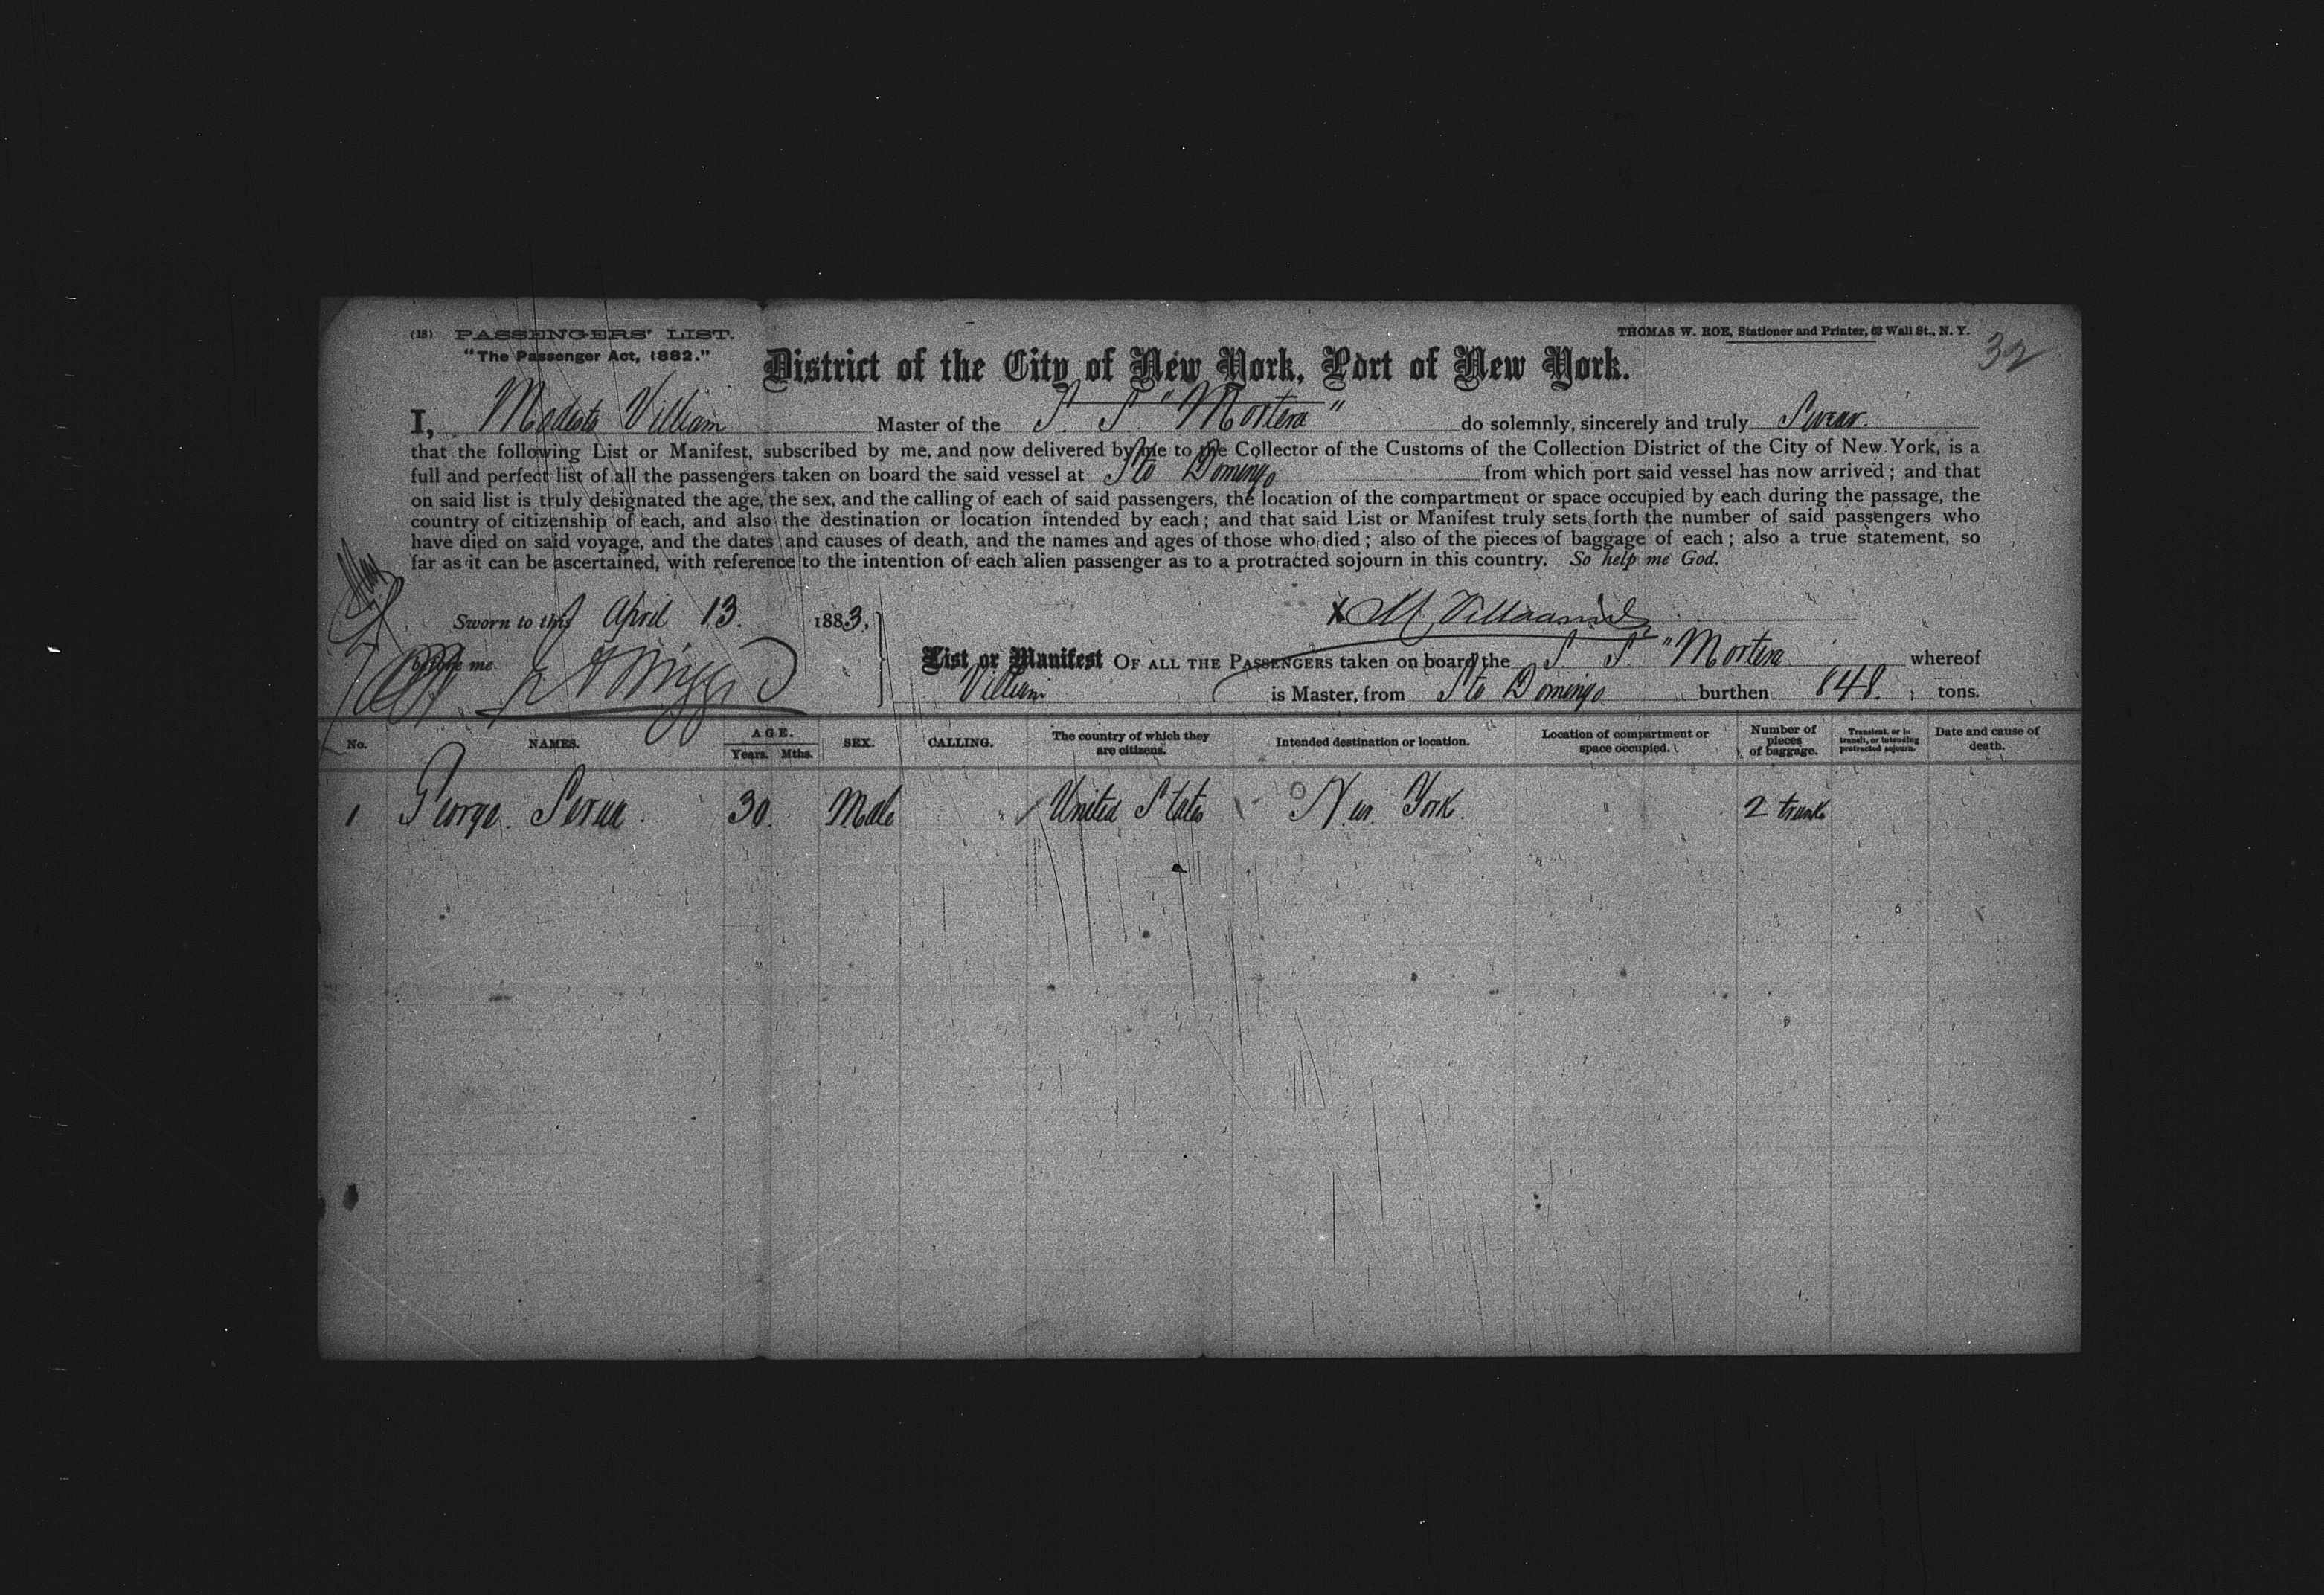 (18) PASSENGERS' LIST.
THOMAS W. ROE, Stationer and Printer, 63 Wall St., N. Y.
32
"The Passenger Act, 1882."
District of the City of New York, Port of New York.
I, Modesto Villiam Master of the S. S "Mortera" do solemnly, sincerely and truly Swear.
that the following List or Manifest, subscribed by me, and now delivered by me to the Collector of the Customs of the Collection District of the City of New York, is a
full and perfect list of all the passengers taken on board the said vessel at Sto Domingo from which port said vessel has now arrived; and that
on said list is truly designated the age, the sex, and the calling of each of said passengers, the location of the compartment or space occupied by each during the passage, the
country of citizenship of each, and also the destination or location intended by each; and that said List or Manifest truly sets forth the number of said passengers who
have died on said voyage, and the dates and causes of death, and the names and ages of those who died; also of the pieces of baggage of each; also a true statement, so
far as it can be ascertained, with reference to the intention of each alien passenger as to a protracted sojourn in this country. So help me God.
Sworn to this April 13. 1883,
X M
before me
List or Manifest OF ALL THE PASSENGERS taken on board the S S "Mortera whereof
Villiam is Master, from Sto Domingo burthen 848. tons.
No. NAMES. AGE. Years. Mths. SEX. CALLING. The country of which they are citizens. Intended destination or location. Location of compartment or space occupied. Number of pieces of baggage. Transient, or in transit, or intending protracted sojourn. Date and cause of death.
1 George 30. Male " United States New York. 2 trunk